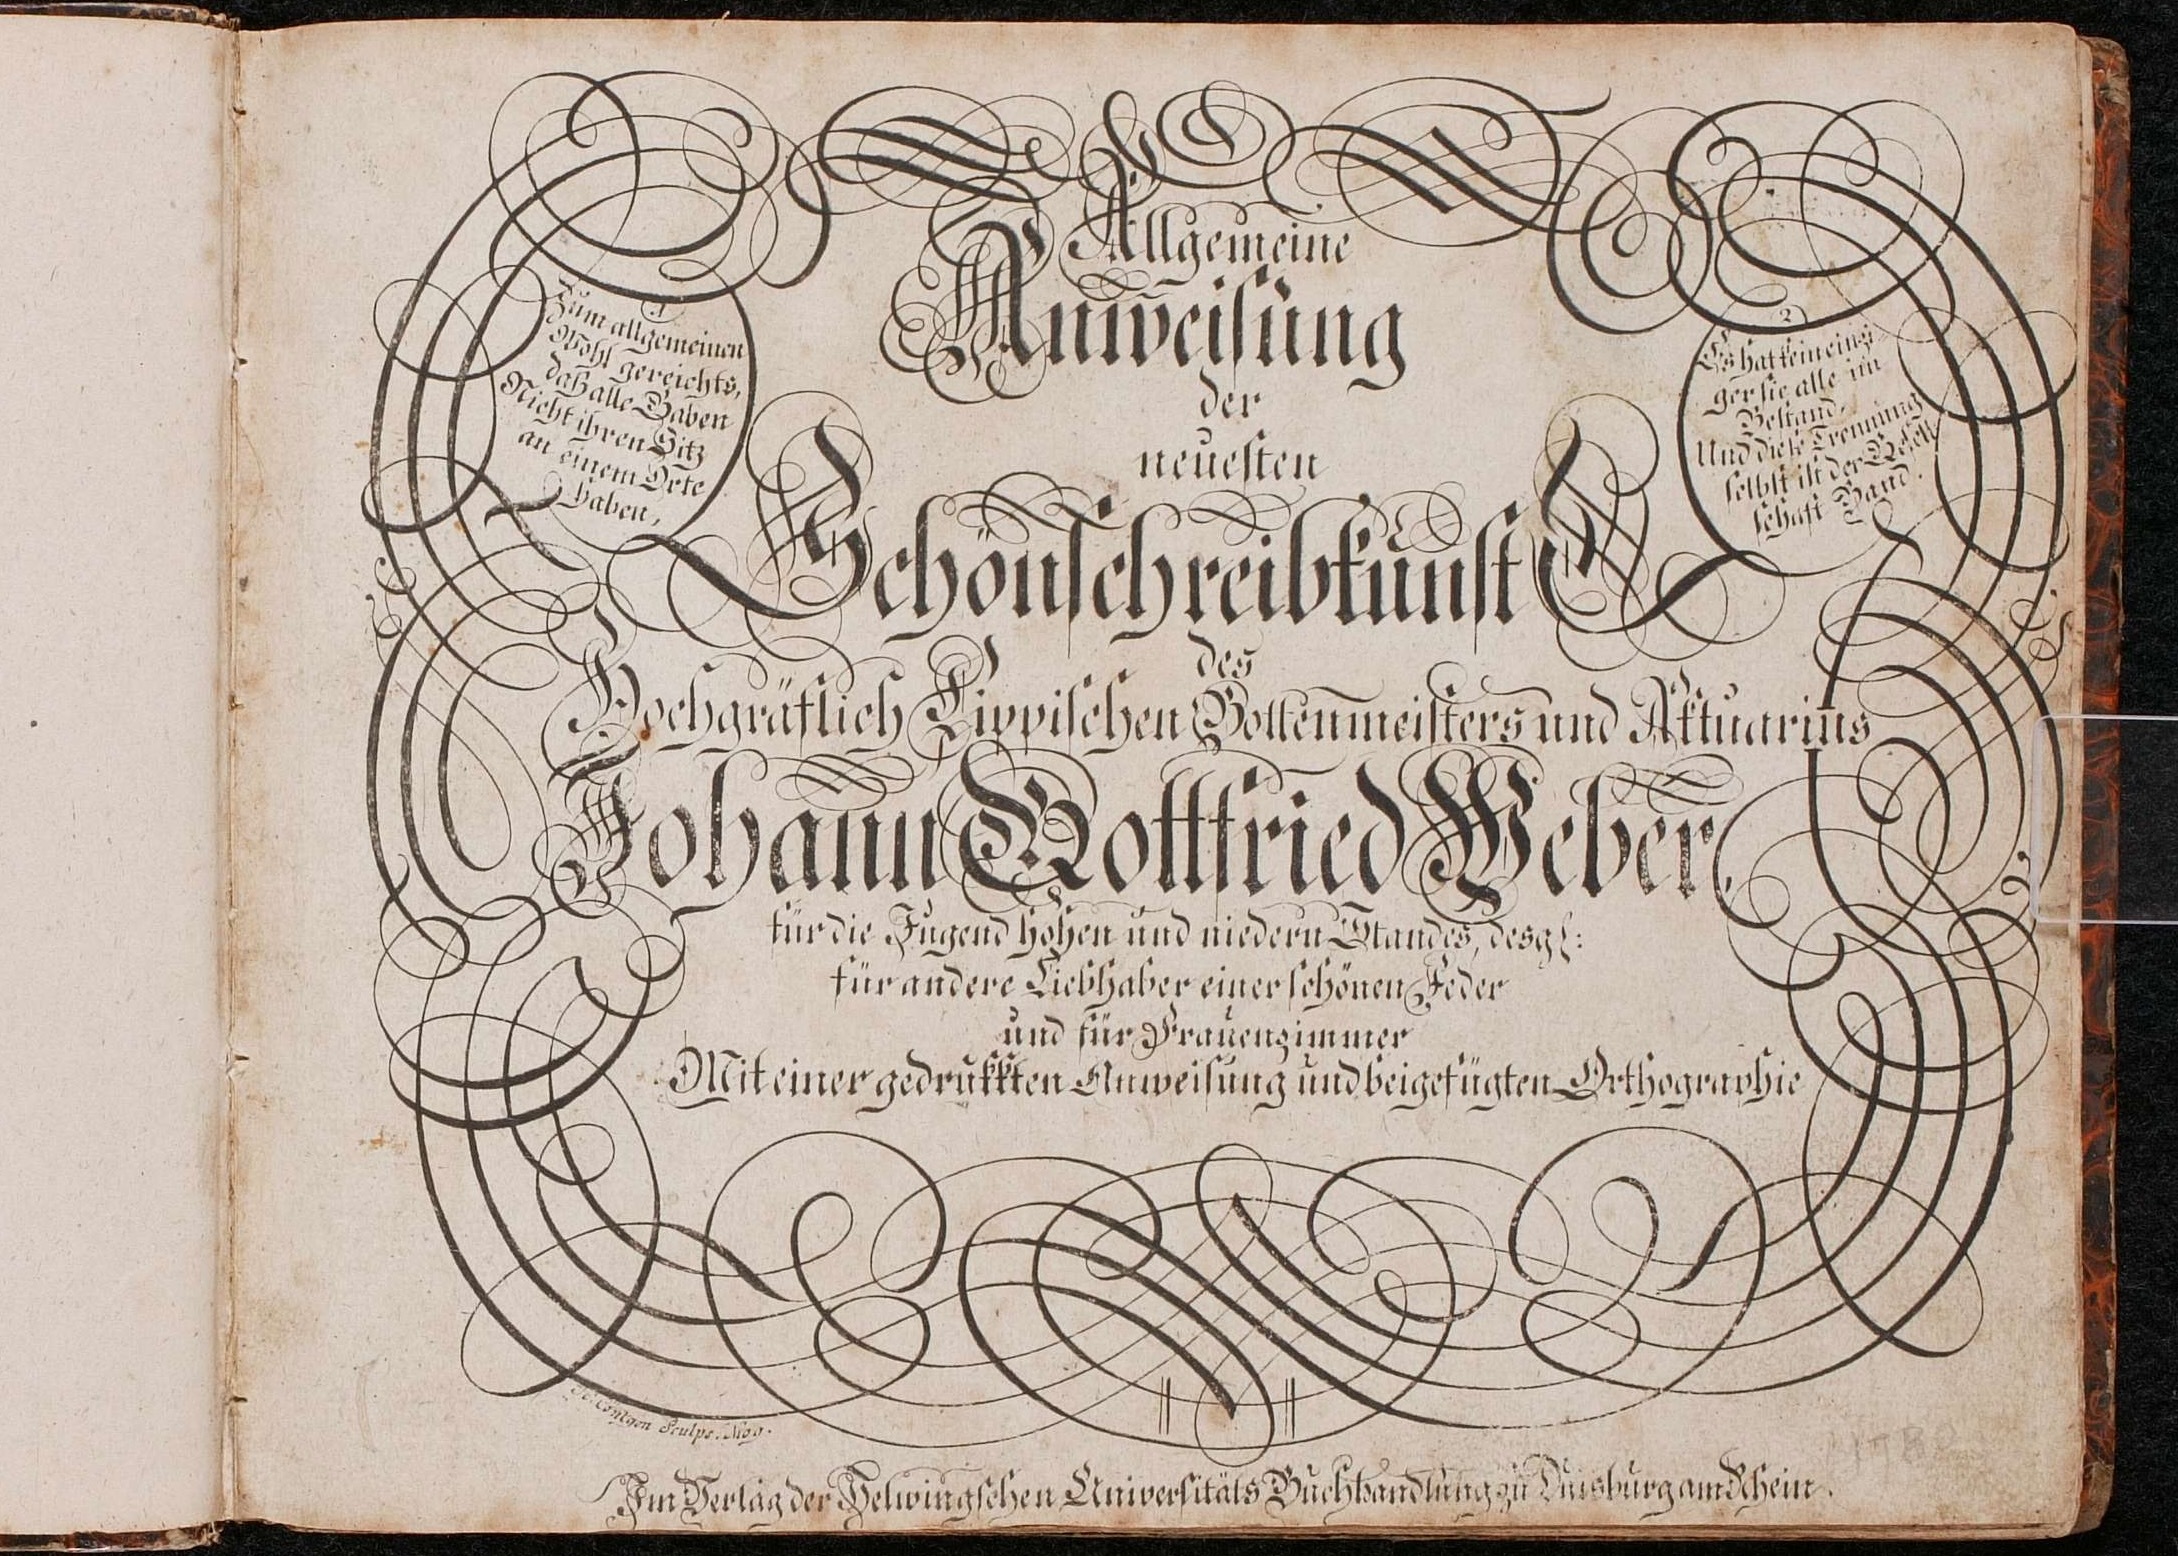 Allgemeine
Anweisung
der
neuesten
Schönschreibkunst
des
Hochgräflich Lippischen Bottenmeisters und Aktuarius
Johann Gottfried Weber,
für die Jugend hohen und niedern Standes, desgl:
für andere Liebhaber einer schönen Feder
und für Frauenzimmer
Mit einer gedrukkten Anweisung und beigefügten Orthographie
1
Zum allgemeinen
Wohl gereichts,
daß alle Gaben
Nicht ihren Sitz
an einem Orte
haben,
2
Es hat kein einzi-
ger sie alle im
Bestand,
Und diese Trennung
selbst ist der Gesell
schaft Band.
Sculps. Mog.
Im Verlag der Helwingschen Universitäts Buchhandlung zu Duisburg am Rhein.
1780